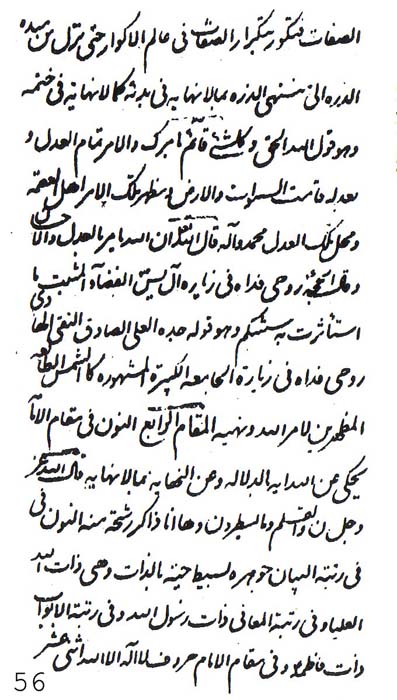 الصفات فیتکور بتکرار الصفات فی عالم الاکوار حتی نزل من مبدء
الذره الی منتهی الذره بما لا نهایه فی بدئه کما لا نهایة فی ختمه
وهو قول الله الحق وکلشئ قائم بامرک والامر تمام العدل و
بعدله قامت السموات والارض و مظهر تلک الامر اهل العصمه
و محل تلک العدل محمد وآله قال الله تعالی ان الله یامر بالعدل والاحسان
وقال الحجة روحی فداه فی زیارة آل یس القضآء المثبت ما
استأثرت به مشیتکم وهو قوله جده العلی الصادق النقی الهادی
روحی فداه فی زیارة الجامعه الکبیرة المشهوره کالشمس الطالعه
المظهرین لامر الله ونهیه المقام الرابع النون فی مقام الانا
یحکی عن البدایه بالدلاله وعن النهایه بما لا نهایه قال الله عز
وجل ن والقلم وما یسطرون وها انا ذاکر رشحة منه النون فی
فی رتبة البیان جوهره بسیط حیّة بالذات وهی ذات الله
العلیا و فی رتبة المعانی ذات رسول الله و فی رتبة الابواب
ذات فاطمه و فی مقام الامام حروف لا اله الا الله اثنی عشر
56